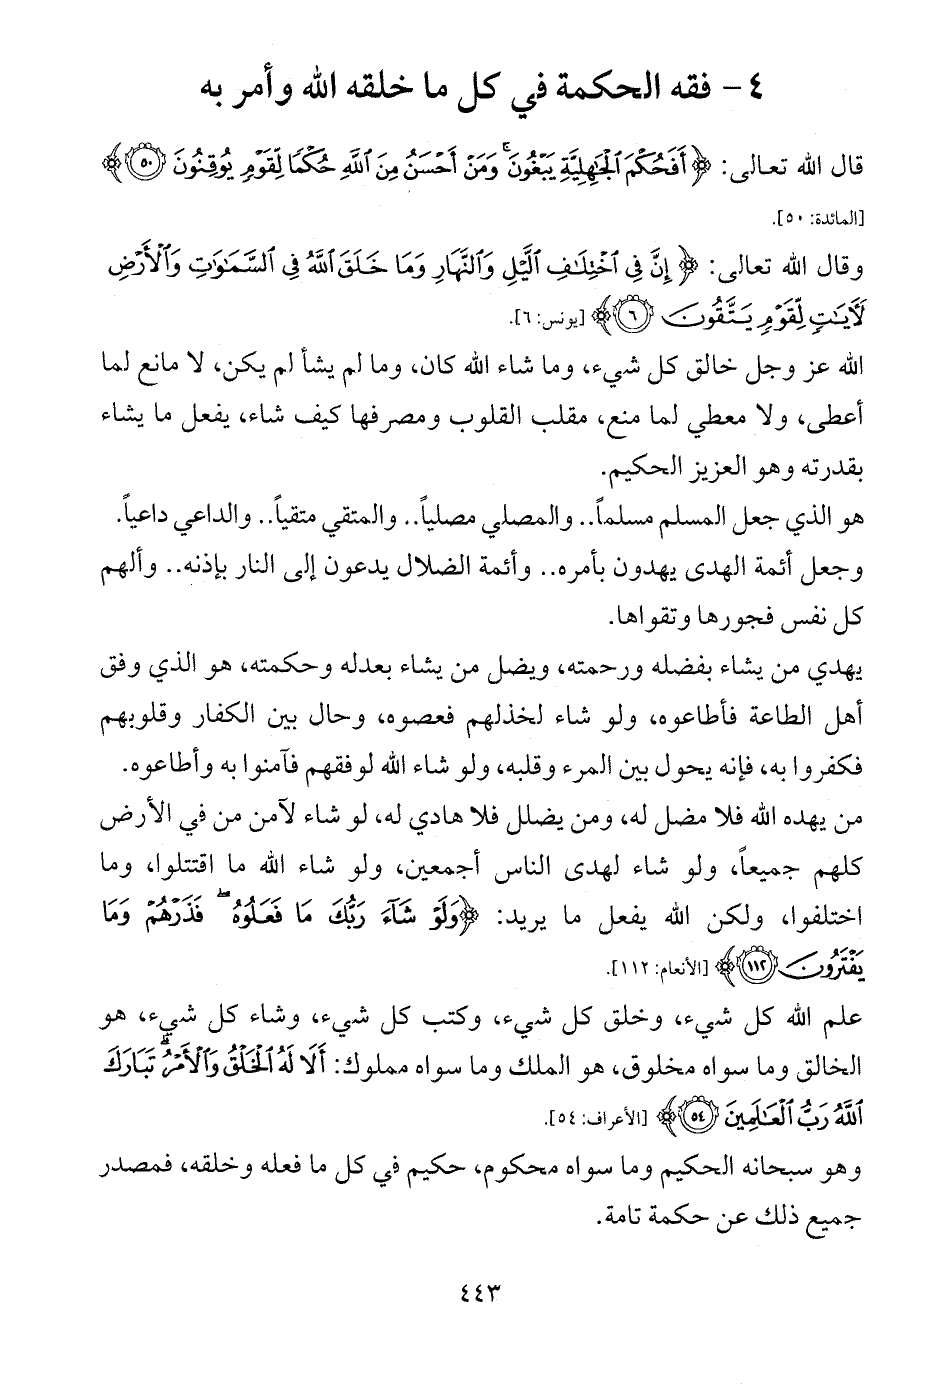 ٤ - فقه الحكمة في كل ما خلقه الله وأمر به
قال الله تعالى: ﴿أَفَحُكْمَ ٱلْجَٰهِلِيَّةِ يَبْغُونَۚ وَمَنْ أَحْسَنُ مِنَ ٱللَّهِ حُكْمًا لِّقَوْمٍ يُوقِنُونَ ٥٠﴾
[المائدة: ٥٠].
وقال الله تعالى: ﴿إِنَّ فِي ٱخْتِلَٰفِ ٱلَّيْلِ وَٱلنَّهَارِ وَمَا خَلَقَ ٱللَّهُ فِي ٱلسَّمَٰوَٰتِ وَٱلْأَرْضِ
لَأٓيَٰتٍ لِّقَوْمٍ يَتَّقُونَ ٦﴾ [يونس: ٦].
الله عز وجل خالق كل شيء، وما شاء الله كان، وما لم يشأ لم يكن، لا مانع لما
أعطى، ولا معطي لما منع، مقلب القلوب ومصرفها كيف شاء، يفعل ما يشاء
بقدرته وهو العزيز الحكيم.
هو الذي جعل المسلم مسلماً.. والمصلي مصلياً.. والمتقي متقياً.. والداعي داعياً.
وجعل أئمة الهدى يهدون بأمره.. وأئمة الضلال يدعون إلى النار بإذنه.. وألهم
كل نفس فجورها وتقواها.
يهدي من يشاء بفضله ورحمته، ويضل من يشاء بعدله وحكمته، هو الذي وفق
أهل الطاعة فأطاعوه، ولو شاء لخذلهم فعصوه، وحال بين الكفار وقلوبهم
فكفروا به، فإنه يحول بين المرء وقلبه، ولو شاء الله لوفقهم فآمنوا به وأطاعوه.
من يهده الله فلا مضل له، ومن يضلل فلا هادي له، لو شاء لآمن من في الأرض
كلهم جميعاً، ولو شاء لهدى الناس أجمعين، ولو شاء الله ما اقتتلوا، وما
اختلفوا، ولكن الله يفعل ما يريد: ﴿وَلَوْ شَآءَ رَبُّكَ مَا فَعَلُوهُۖ فَذَرْهُمْ وَمَا
يَفْتَرُونَ ١١٢﴾ [الأنعام: ١١٢].
علم الله كل شيء، وخلق كل شيء، وكتب كل شيء، وشاء كل شيء، هو
الخالق وما سواه مخلوق، هو الملك وما سواه مملوك: أَلَا لَهُ ٱلْخَلْقُ وَٱلْأَمْرُۗ تَبَارَكَ
ٱللَّهُ رَبُّ ٱلْعَٰلَمِينَ ٥٤﴾ [الأعراف: ٥٤].
وهو سبحانه الحكيم وما سواه محكوم، حكيم في كل ما فعله وخلقه، فمصدر
جميع ذلك عن حكمة تامة.
٤٤٣